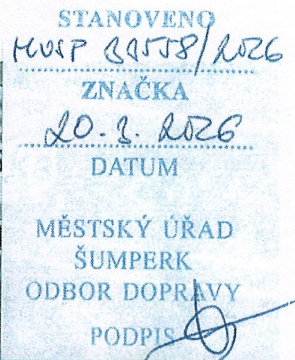 STANOVENO
MUSP 31558/2026
ZNAČKA
20. 3. 2026
DATUM
MĚSTSKÝ ÚŘAD
ŠUMPERK
ODBOR DOPRAVY
PODPIS